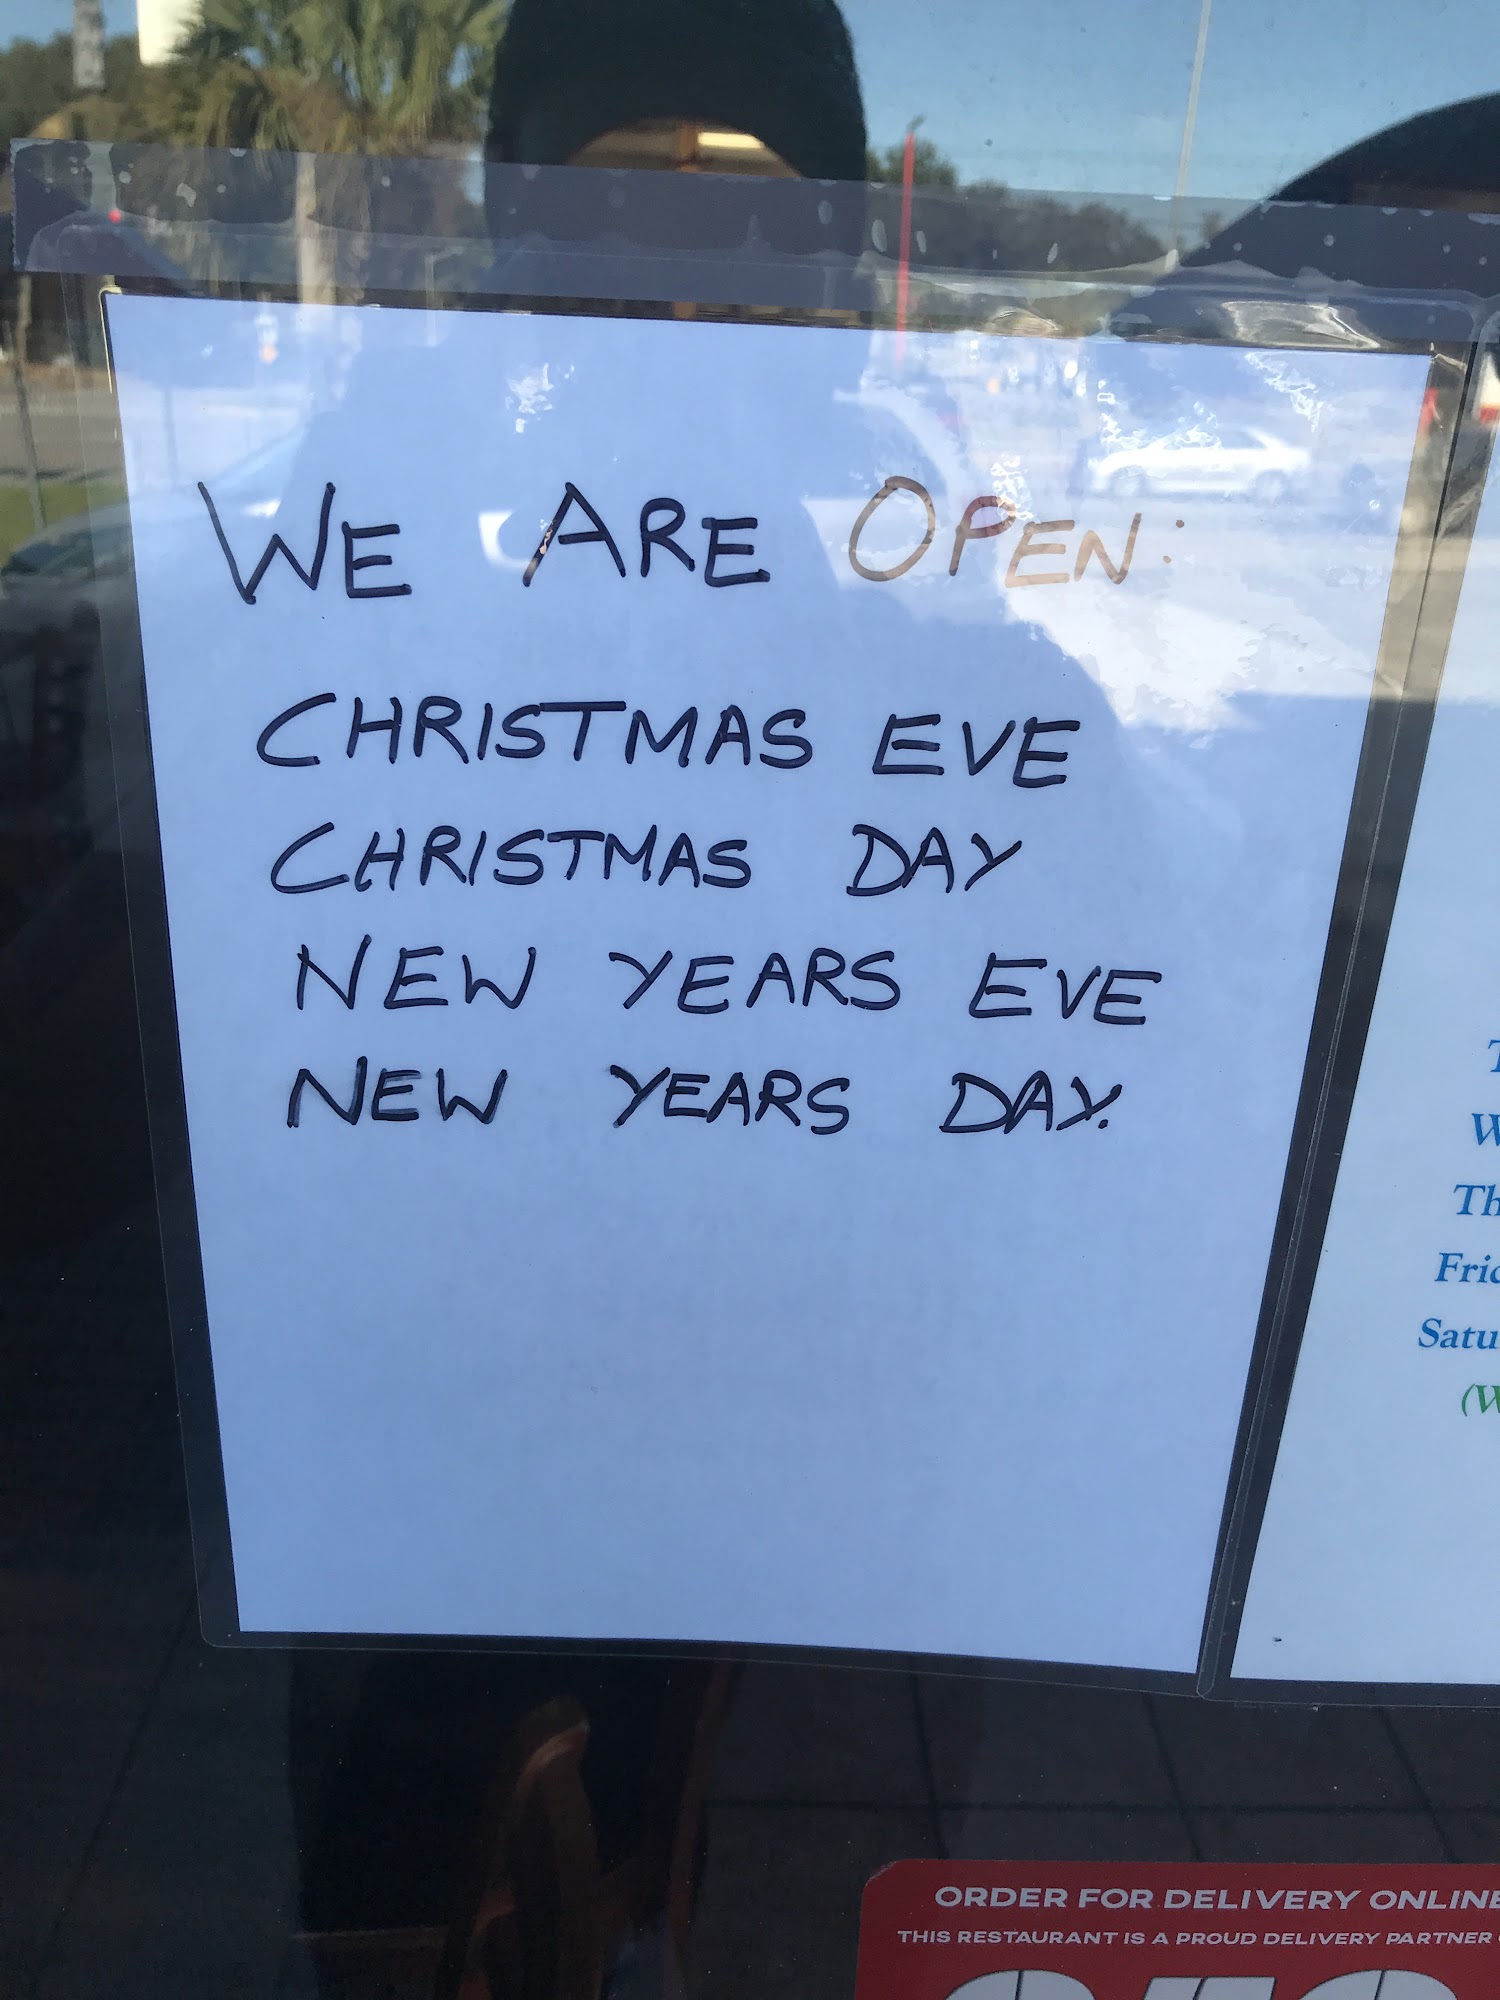 WE ARE OPEN:
CHRISTMAS EVE
CHRISTMAS DAY
NEW YEARS EVE
NEW YEARS DAY.
ORDER FOR DELIVERY ONLINE
THIS RESTAURANT IS A PROUD DELIVERY PARTNER